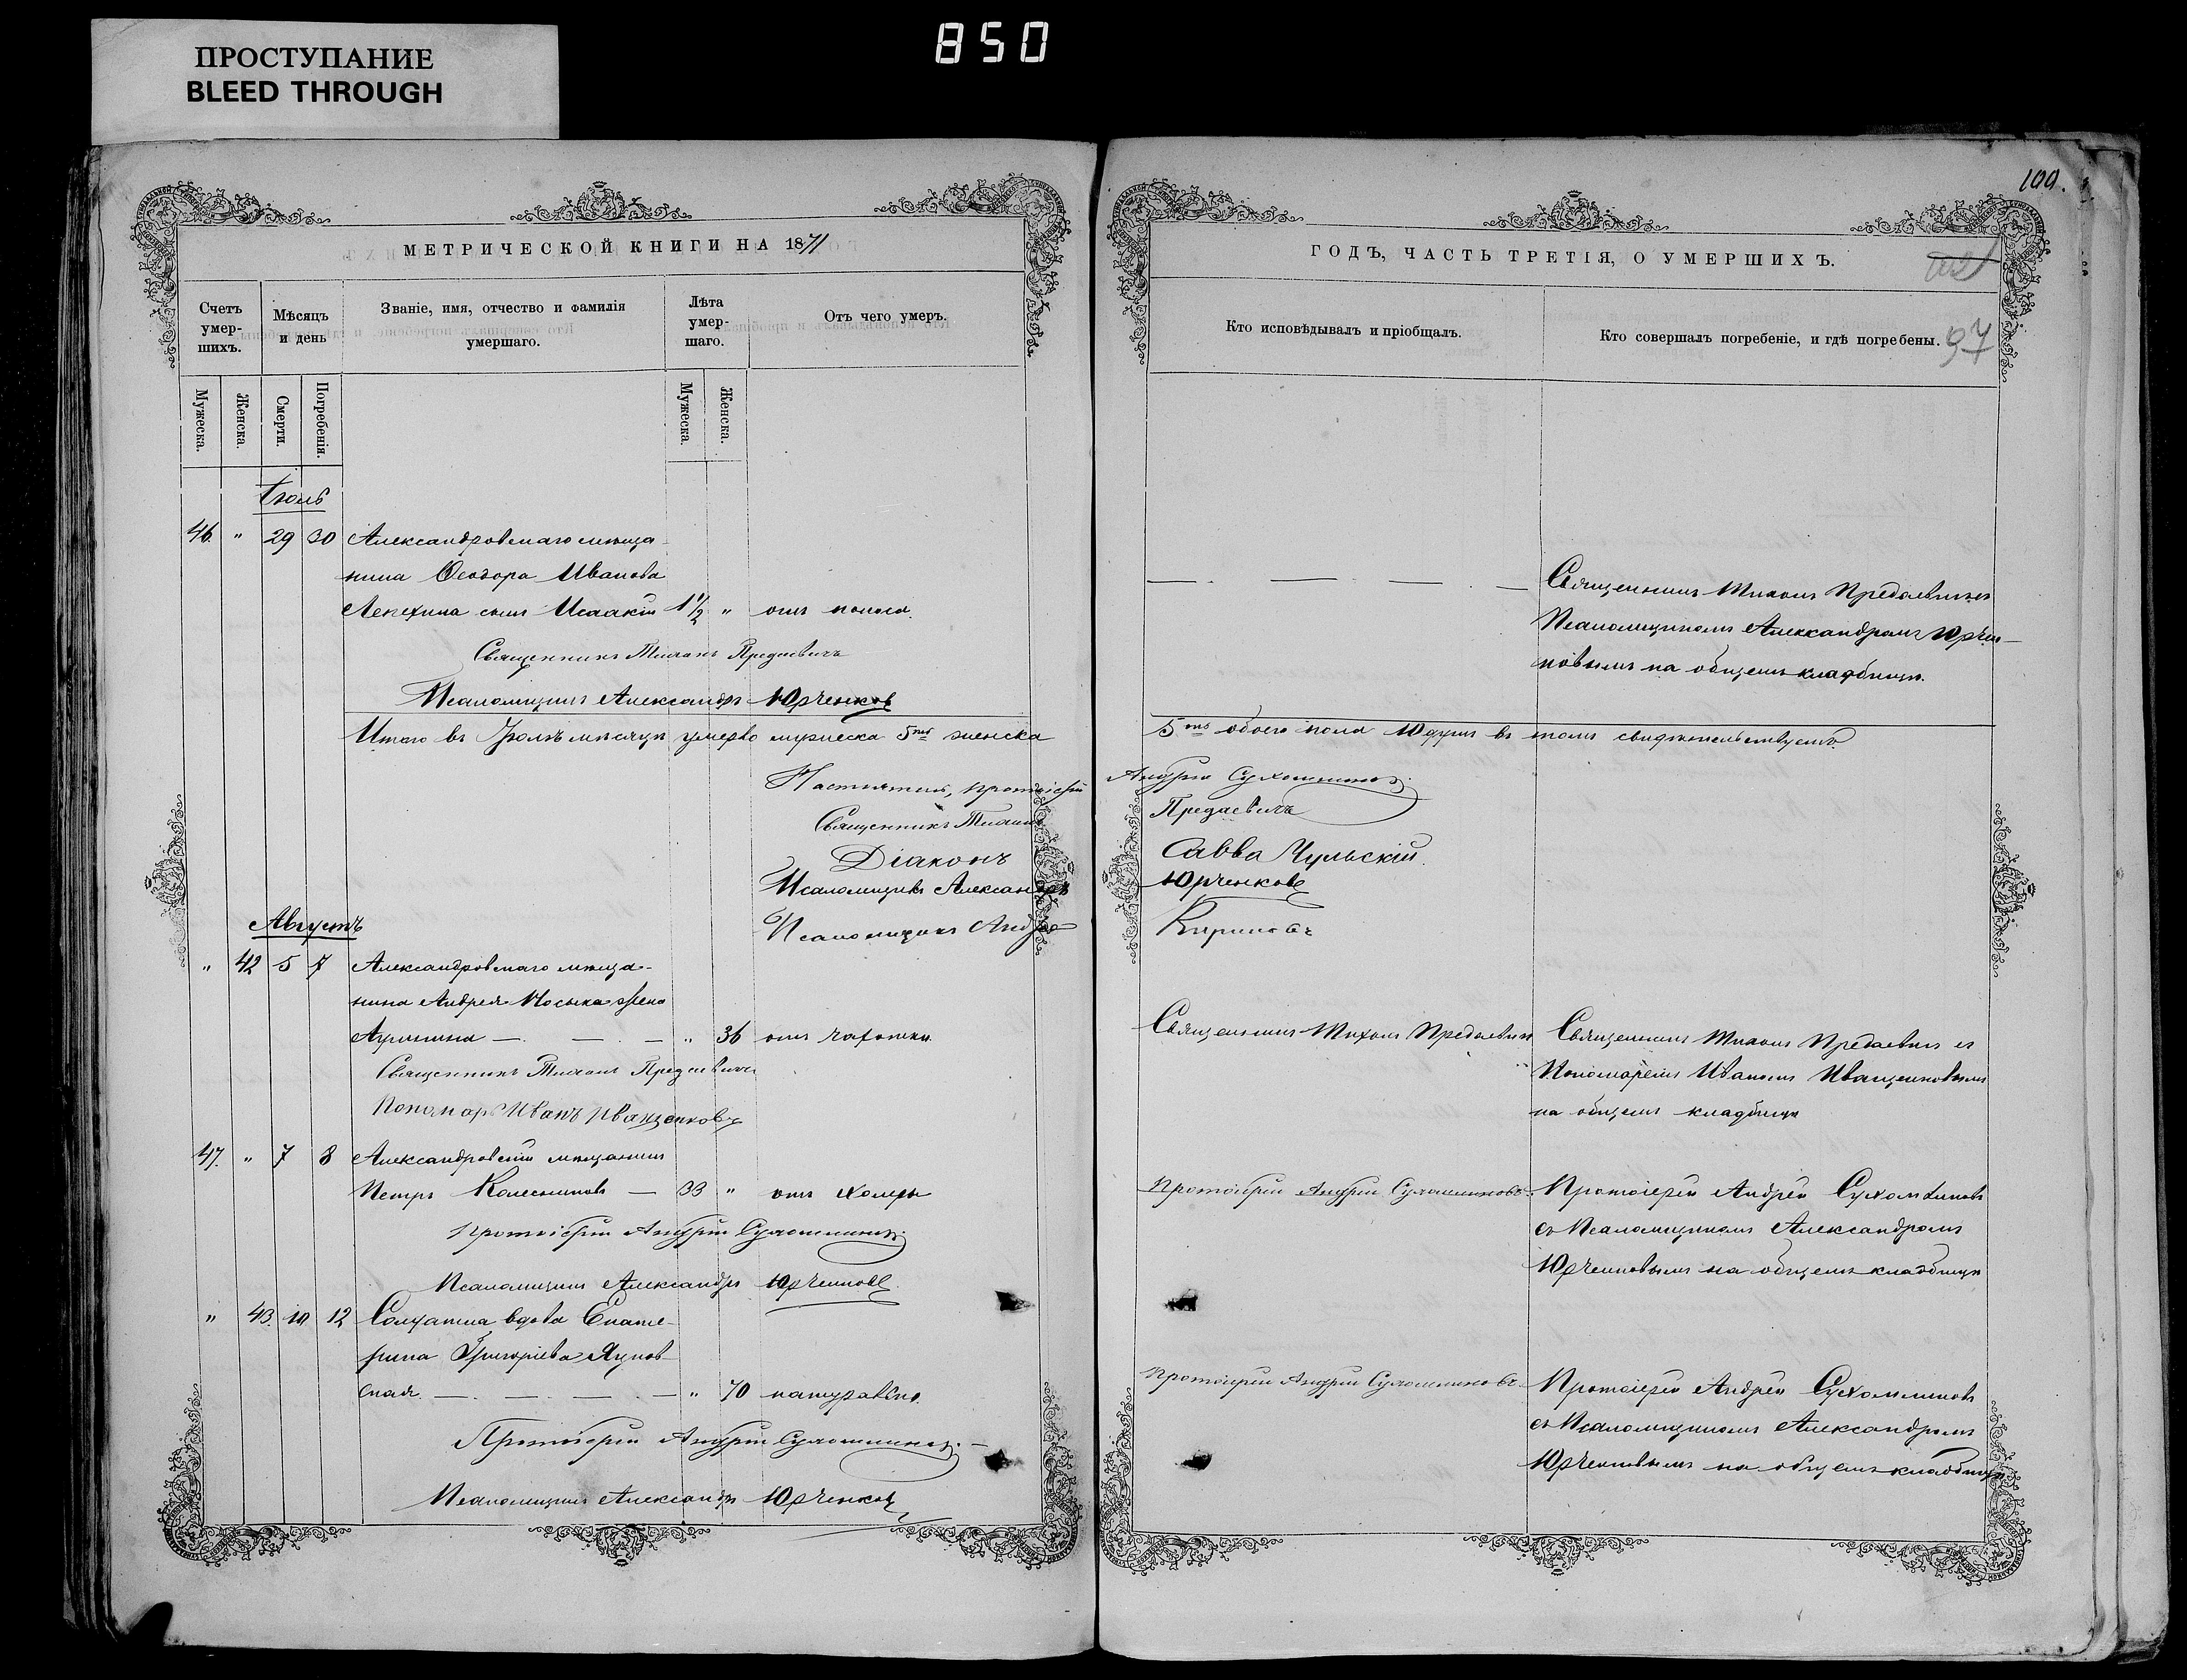 850
ПРОСТУПАНИЕ
BLEED THROUGH
100.
МЕТРИЧЕСКОЙ КНИГИ НА 1871
Счетъ умер-шихъ.
Мѣсяцъ и день
Званіе, имя, отчество и фамилія умершаго.
Лѣта умер-шаго.
Отъ чего умеръ.
Мужеска.
Женска.
Смерти.
Погребенія.
Мужеска.
Женска.
Іюль
46. " 29 30 Александровскаго мѣща-
нина Ѳеодора Иванова
Лепехина сынъ Исаакій 1 1/2 " отъ поноса.
Священникъ Тихонъ Предаевичъ
Псаломщикъ Александръ Юрченковъ
Итого въ Іюлѣ мѣсяцѣ умерло мужеска 5ть женска
Настоятель, протоіерей
Священникъ Тихонъ
Діаконъ
Псаломщикъ Александръ
Псаломщикъ Андрей
Августъ
" 42 5 7 Александровскаго мѣща-
нина Андрея Носыка жена
— " 36 отъ чахотки
Священникъ Тихонъ Предаевичъ
Пономарь Иванъ Иващенковъ
47. " 7 8 Александровскій мѣщанинъ
Петръ Колесниковъ — 33 " отъ холеры
Протоіерей Андрей Сухомлиновъ.
Псаломщикъ Александръ Юрченковъ
" 43. 10 12 Солдатка вдова Екате-
рина Григоріева Яцков-
ская — " 70 натурально.
Протоіерей Андрей Сухомлиновъ.
Псаломщикъ Александръ Юрченковъ
ГОДЪ, ЧАСТЬ ТРЕТІЯ, О УМЕРШИХЪ.
Кто исповѣдывалъ и пріобщалъ.
Кто совершалъ погребеніе, и гдѣ погребены.
97
Священникъ Тихонъ Предаевичъ съ
Псаломщикомъ Александромъ Юрчен-
ковымъ на общемъ кладбищѣ.
5ть обоего пола 10 душъ въ томъ свидѣтельствуемъ
Андрей Сухомлиновъ.
Предаевичъ
Савва Чульскій.
Юрченковъ
Кириловъ
Священникъ Тихонъ Предаевичъ
Священникъ Тихонъ Предаевичъ съ
Пономаремъ Иваномъ Иващенковымъ
на общемъ кладбищѣ
Протоіерей Андрей Сухомлиновъ.
Протоіерей Андрей Сухомлиновъ
съ Псаломщикомъ Александромъ
Юрченковымъ на общемъ кладбищѣ
Протоіерей Андрей Сухомлиновъ.
Протоіерей Андрей Сухомлиновъ
съ Псаломщикомъ Александромъ
Юрченковымъ на общемъ кладбищѣ